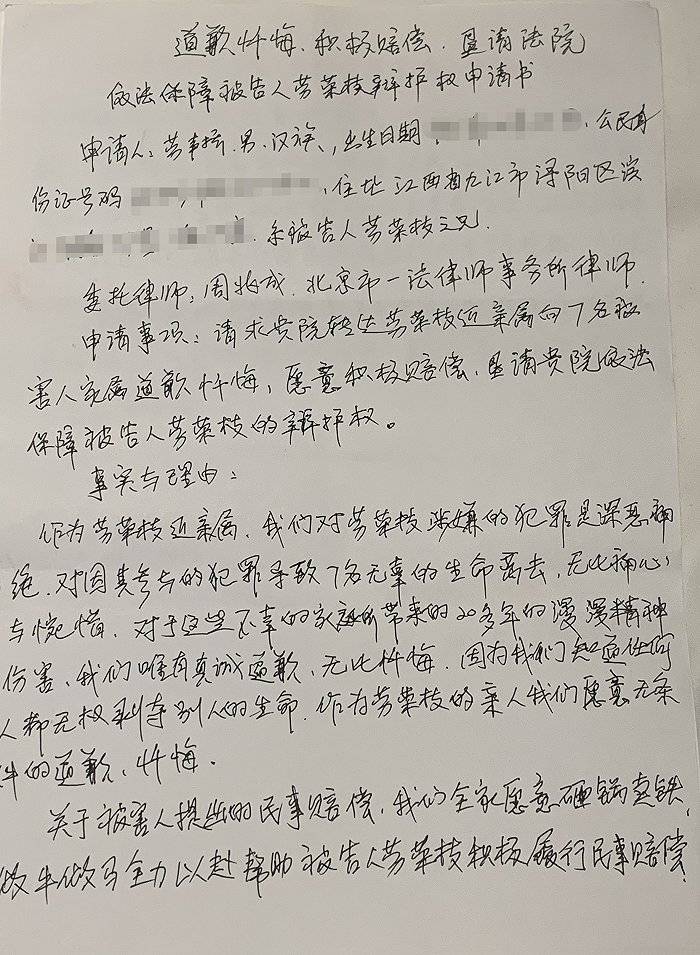 道歉忏悔、积极赔偿、恳请法院
依法保障被告人劳荣枝辩护权申请书
申请人：劳声桥、男、汉族、出生日期、公民身
份证号码、住址江西省九江市浔阳区滨
系被告人劳荣枝之兄.
委托律师：周兆成、北京市一法律师事务所律师.
申请事项：请求贵院转达劳荣枝近亲属向7名被
害人家属道歉忏悔，愿意积极赔偿，恳请贵院依法
保障被告人劳荣枝的辩护权。
事实与理由：
作为劳荣枝近亲属，我们对劳荣枝涉嫌的犯罪是深恶痛
绝，对因其参与的犯罪导致7名无辜的生命离去，无比痛心
与惋惜，对于这些不幸的家庭所带来的20多年的漫漫精神
伤害，我们唯有真诚道歉、无比忏悔。因为我们知道任何
人都无权剥夺别人的生命，作为劳荣枝的亲人我们愿意无条
件的道歉、忏悔。
关于被害人提出的民事赔偿，我们全家愿意砸锅卖铁、
做牛做马全力以赴帮助被告人劳荣枝积极履行民事赔偿